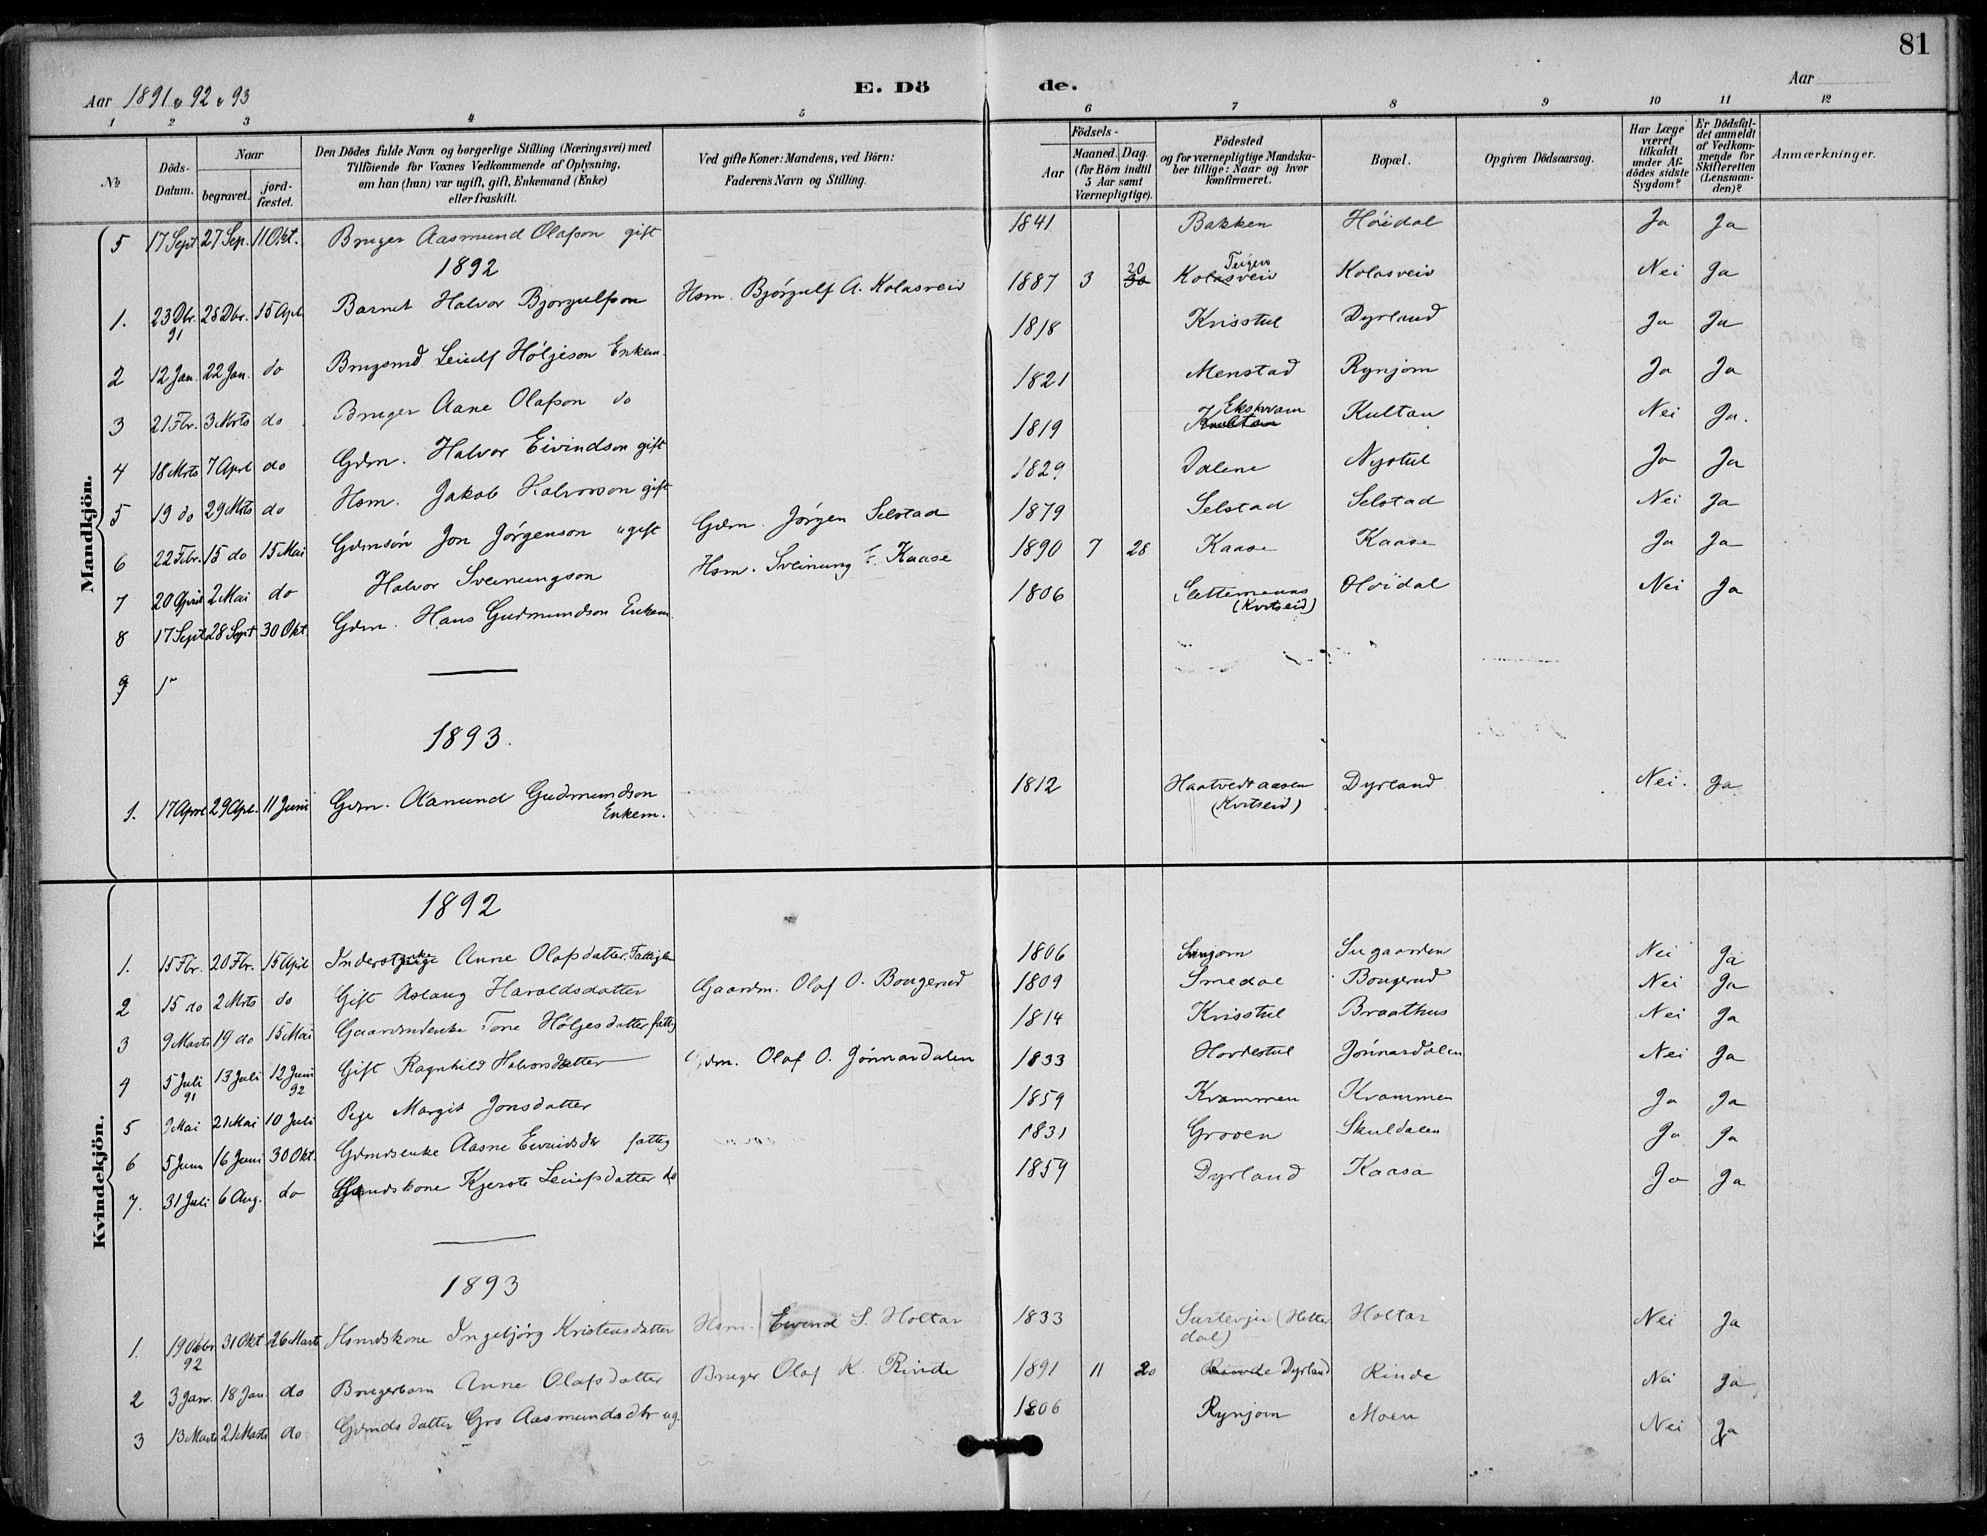 81
Aar 1891 & 92 & 93
E. Dö de.
Aar
1 2 3 4 5 6 7 8 9 10 11 12
No.
Döds-Datum.
Naar
begravet.
jord-fæstet.
Den Dödes fulde Navn og borgerlige Stilling (Næringsvei) med
Tilföiende for Voxnes Vedkommende af Oplysning,
om han (hun) var ugift, gift, Enkemand (Enke)
eller fraskilt.
Ved gifte Koner: Mandens, ved Börn:
Faderens Navn og Stilling.
Födsels-
Aar
Maaned. Dag.
(for Börn indtil
5 Aar samt
Værnepligtige).
Födested
og for værnepligtige Mandska-
ber tillige: Naar og hvor
konfirmeret.
Bopæl.
Opgiven Dödsaarsag.
Har Læge
været
tilkaldt
under Af-
dödes sidste
Sygdom?
Er Dödsfal-
det anmeldt
af Vedkom-
mende for
Skifteretten
(Lensman-
den)?
Anmærkninger.
Mandkjön.
5 17 Sept 27 Sep. 11 Okt. Bruger Aasmund Olafson gift 1841 Bakken Höidal Ja Ja
1892
1. 23 Dbr. 91 28 Dbr. 15 Apl. Barnet Halvor Bjorgulfson Hsm. Björgulf A. Kolasveiv 1887 3 20 30 Teigen Kolasveiv Kolasveiv Nei Ja
2 12 Jan. 22 Jan. do Brugsmd. Leiulf Höljeson Enkem. 1818 Krisstul Dyrland Ja Ja
3 21 Fbr. 3 Mrts do Bruger Aane Olafson do 1821 Menstad Rynjom Ja Ja
4 18 Mrts 7 April do Gdm. Halvor Eivindson gift 1819 Ekshvam Kultan Kultan Nei Ja.
5 19 do 29 Mrts do Hsm. Jakob Halvorson gift 1829 Dalene Nystul Ja Ja
6 22 Febr. 15 do 15 Mai Gdmsön Jon Jörgenson ugift Gdm. Jörgen Selstad 1879 Selstad Selstad Nei Ja
7 20 April 2 Mai do Halvor Sveinungson Hsm. Sveinung E. Kaase 1890 7 28 Kaase Kaase Ja Ja
8 17 Sept 28 Sept 30 Okt. Gdm. Hans Gudmundson Enkem. 1806 (Kvitseid) Höidal Nei Ja
9
1893.
1. 17 April 29 Apl. 11 Juni Gdm. Aamund Gudmundson Enkem. 1812 Haatvedtaasen (Kvitseid) Dyrland Nei. Ja
Kvindekjön.
1892
1. 15 Fbr. 20 Fbr. 15 April Anne Olafsdatter. Fattiglem 1806 Sugaarden Nei Ja
2 15 do 2 Mrts do Gift Aslaug Haraldsdatter Gaardm. Olaf O. Bougerud 1809 Smedal Bougerud Nei Ja
3 9 Marts 19 do 15 Mai Gaardmdenke Tone Höljesdatter fattig 1814 Krisstul Braathus Nei Ja
4 5 Juli 91 13 Juli 12 Juni 92 Gift Ragnhild Halvorsdatter Gdm. Olaf O. Jönnardalen 1833 Hordestul Jönnardalen Nei Ja
5 9 Mai 21 Mai 10 Juli Pige Margit Jonsdatter 1859 Kvammen Kvammen Ja Ja
6 5 Juni 16 Juni 30 Okt. Gdmdsenke Aasne Eivindsdtr fattig 1831 Groven Skuldalen Ja Ja
7. 31 Juli 6 Aug. do Gdmdskone Kjersti Leiulfsdatter do 1859 Dyrland Kaasa Ja Ja
1893
1. 19 Oktbr 92 31 Okt 26 Marts Hsmdskone Ingebjörg Kristensdatter Hsm. Eivind S. Holtar 1833 (Hitterdal) Holtar Nei Ja
2 3 Janr. 18 Jan do Brugerbarn Anne Olafsdatter Bruger Olaf K. Rinde 1891 11 20 Rinde Dyrland Rinde Nei Ja
3 13 Marts 21 Marts do Gdmdsdatter Gro Aasmundsdtr ug. 1806 Rynjom Moen Nei Ja